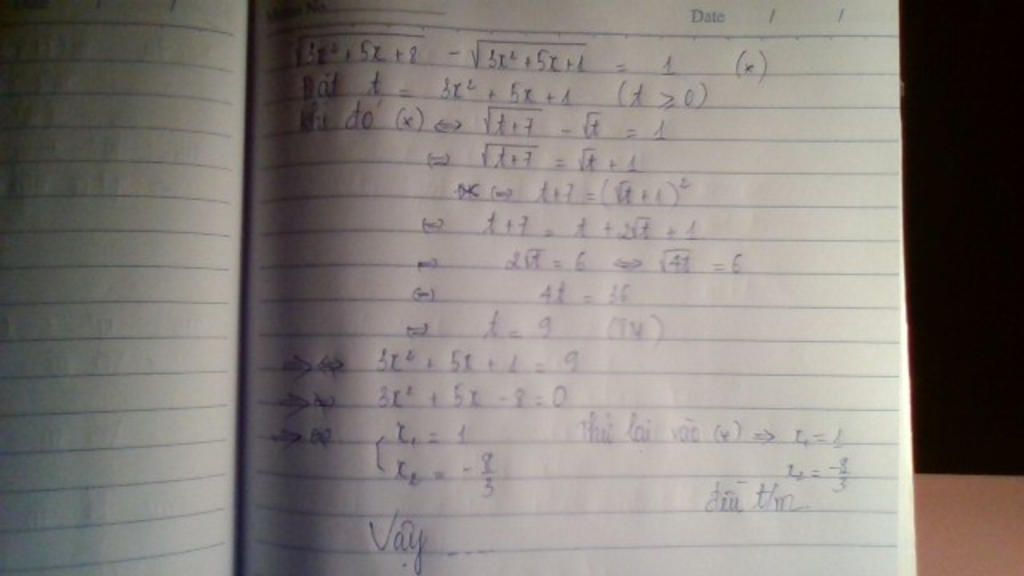 Date / /
√3x² + 5x + 8 - √3x² + 5x + 1 = 1 (*)
Đặt t = 3x² + 5x + 1 (t ≥ 0)
Khi đó (*) ⇔ √t+7 - √t = 1
⇔ √t+7 = √t + 1
⇔ t+7 = (√t + 1)²
⇔ t+7 = t + 2√t + 1
⇔ 2√t = 6 ⇔ √4t = 6
⇔ 4t = 36
⇔ t = 9 (TM)
⇒ 3x² + 5x + 1 = 9
⇒ 3x² + 5x - 8 = 0
⇒ x₁ = 1 Thử lại vào (*) ⇒ x₁ = 1
x₂ = -8/3 x₂ = -8/3
đều t/m
Vậy ....